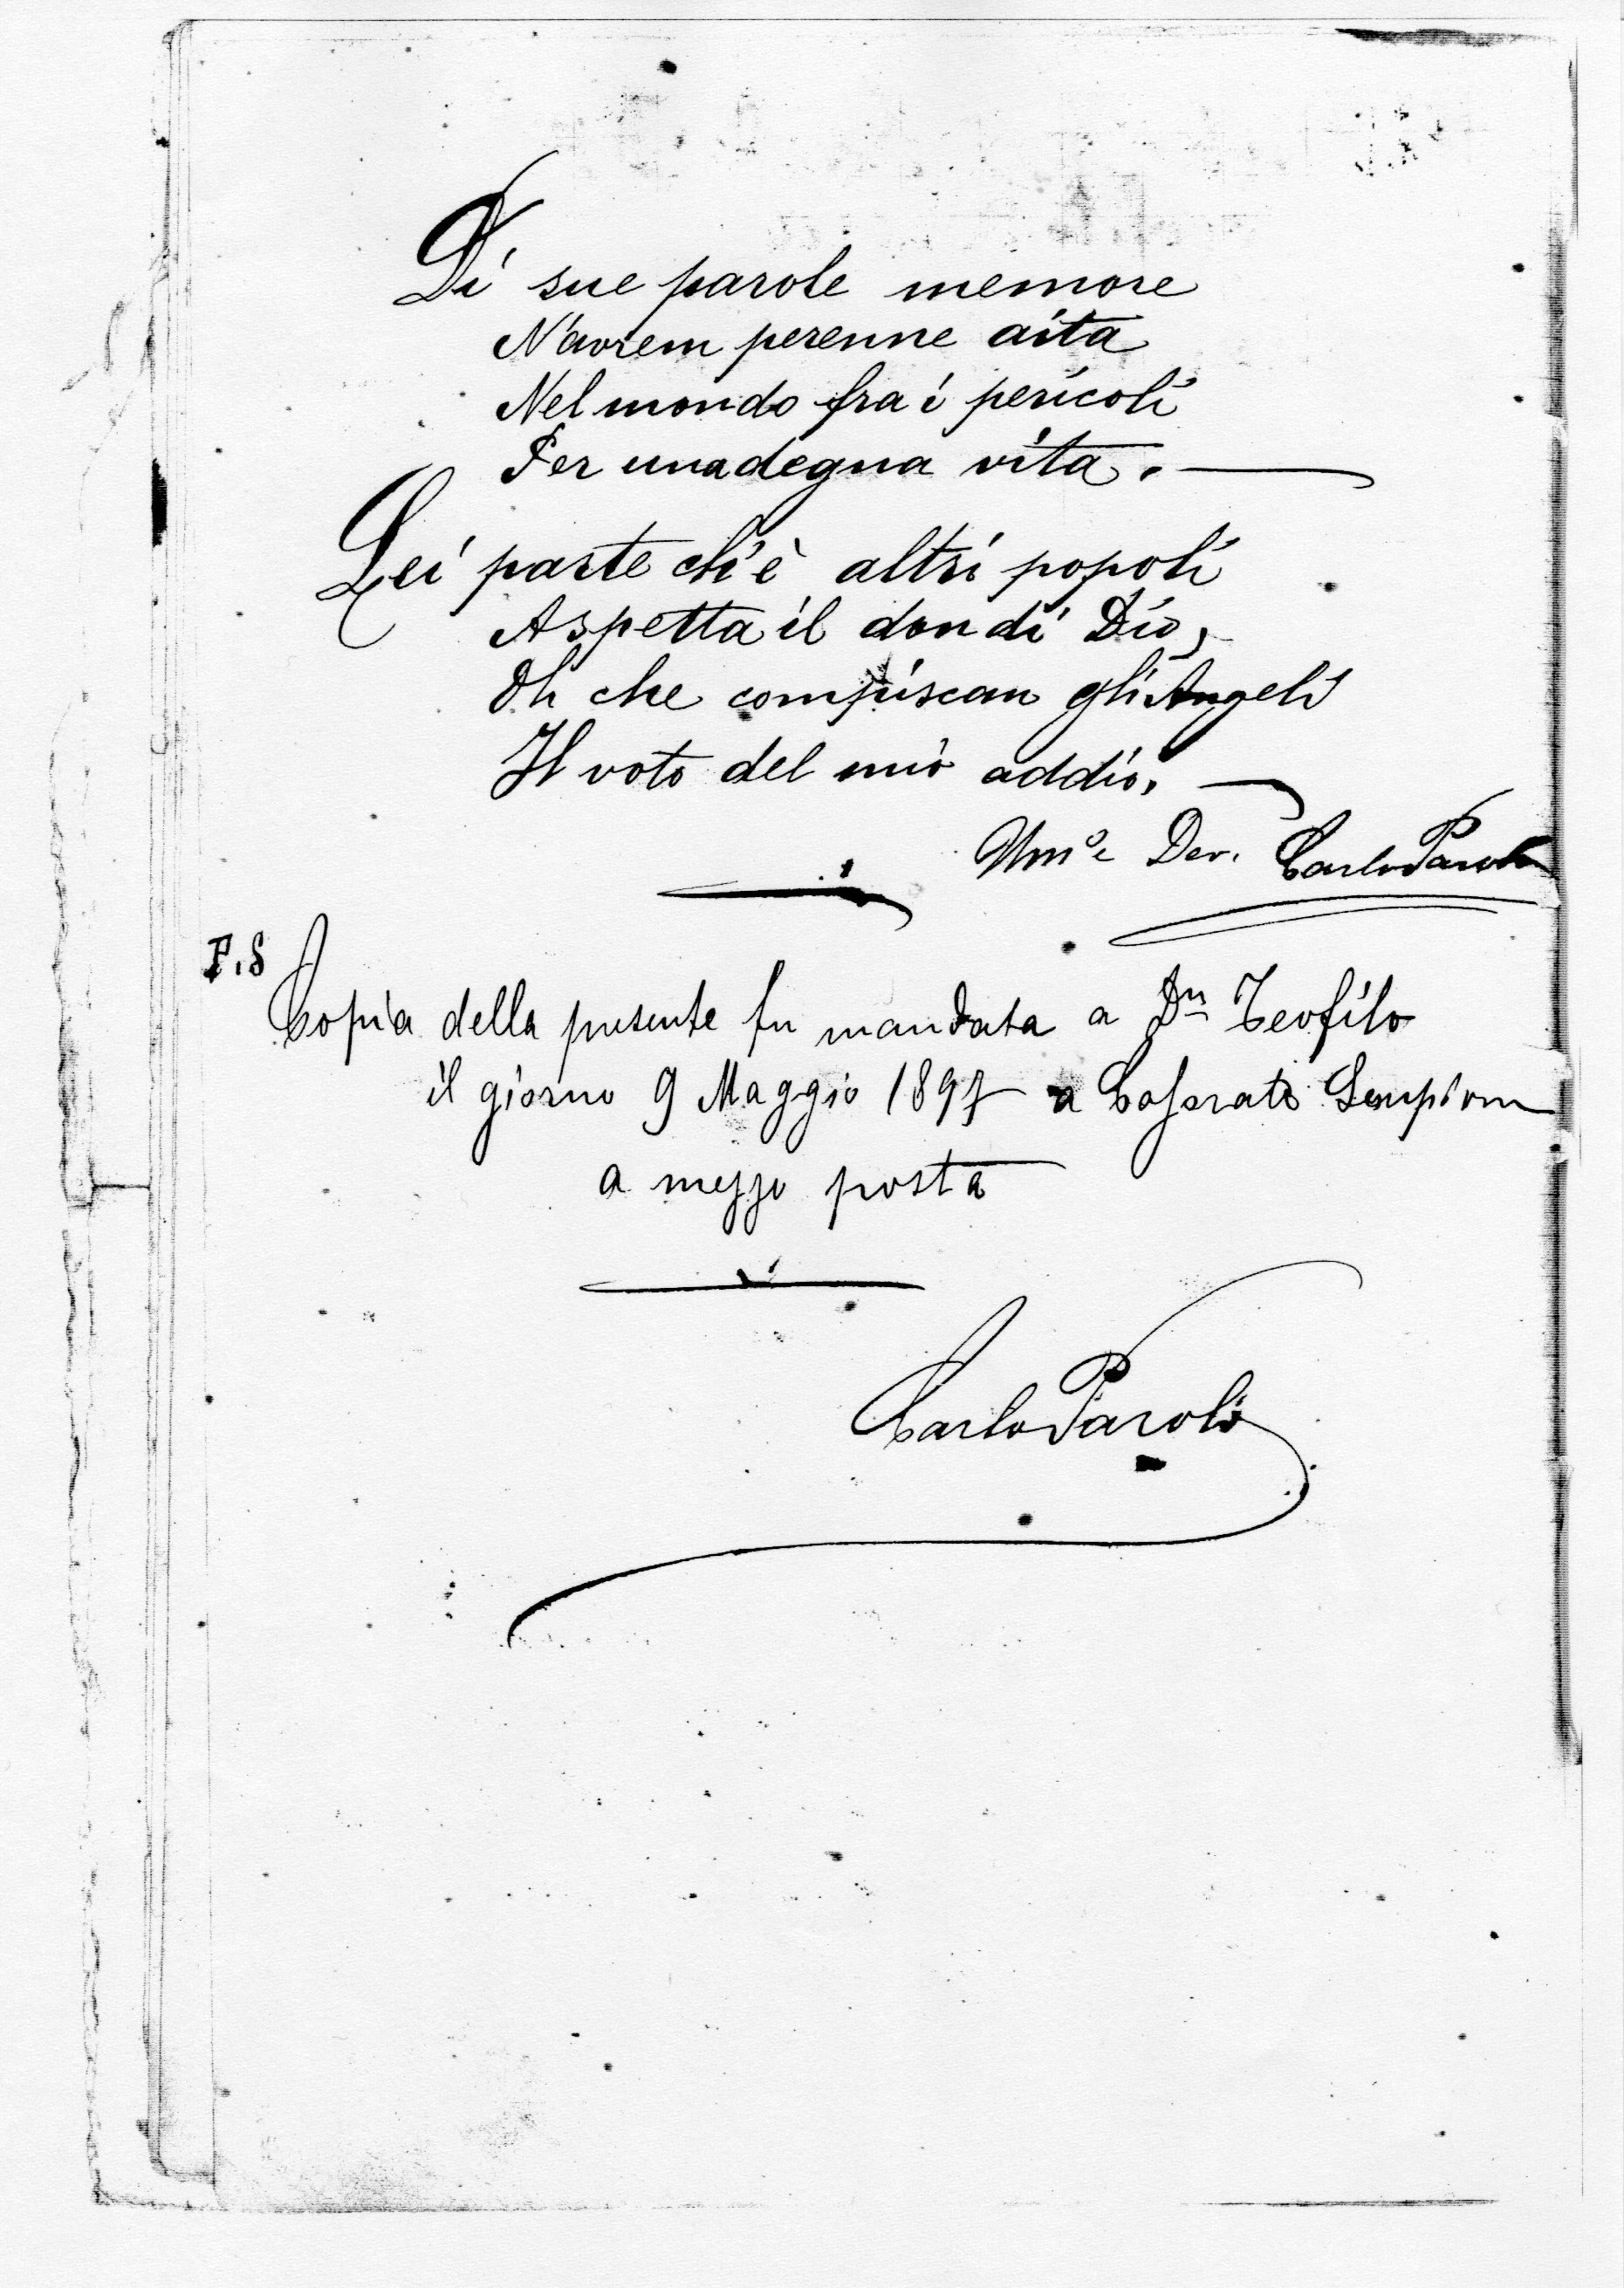 Di sue parole memore
N'avrem perenne aita
Nel mondo fra i pericoli
Per una degna vita.
Lei parte chè altri popoli
Aspetta il don di Dio,
Oh che compiscan gli Angeli
Il voto del mio addio.
Umo e Dev. Carlo Paroli
P.S
Copia della presente fu mandata a Dn Teofilo
il giorno 9 Maggio 1897 a Sempione
a mezzo posta
Carlo Paroli